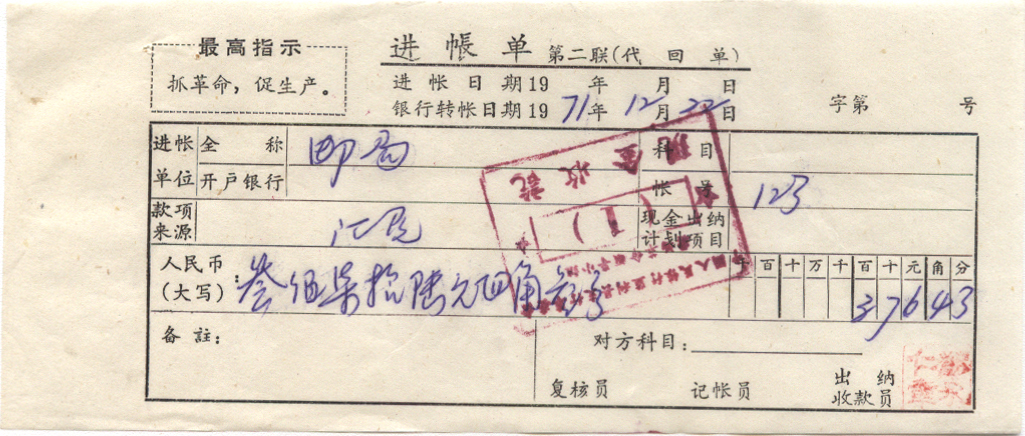 最高指示
抓革命，促生产。
进帐单 第二联(代回单)
进帐日期19 年 月 日
银行转帐日期1971年12月22日
字第 号
进帐单位 全称 邮局 科目
开户银行 帐号 123
款项来源 汇兑 现金出纳计划项目
人民币(大写): 叁佰柒拾陆元四角叁分
千百十万千百十元角分
37643
备註:
对方科目:
复核员 记帐员 出纳收款员
现金收讫
(1)